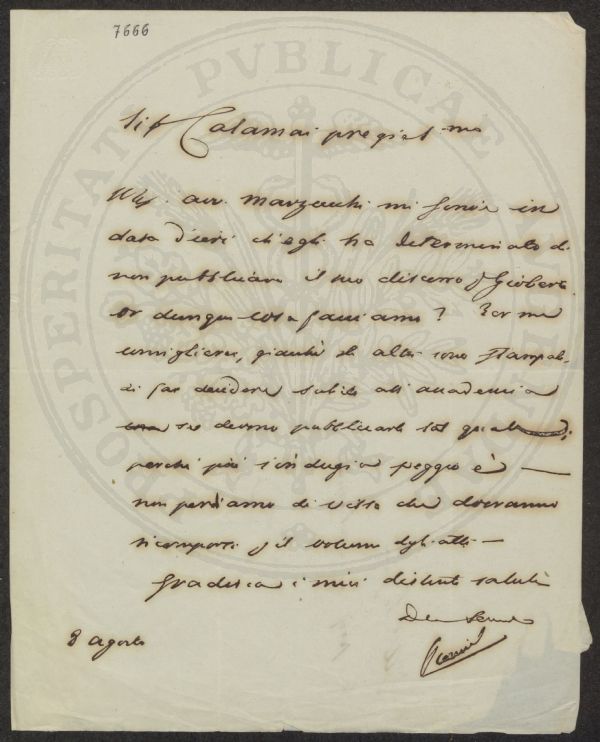 7666
Sig Calamai pregiat mo
avv. Marzucchi mi scrive in
data d'ieri ch'egli ha determinato di
non pubblicare il suo discorso Gioberti
Or dunque cosa facciamo? Per me
consiglierei, giacché gli altri sono stampati,
di far decidere subito all'accademia
se devono pubblicarsi tal quali,
perché più s'indugia peggio è —
non perdiamo di vista che dovranno
ricomporsi il volume degli atti —
Gradisca i miei distinti saluti
8 agosto
PROSPERITATI PVBLICAE AVGENDAE